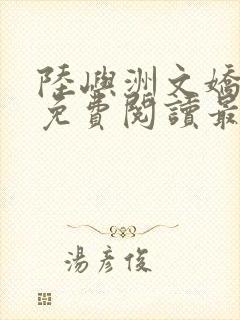 陸嶼洲文嬌
免費閱讀最
湯彥俊